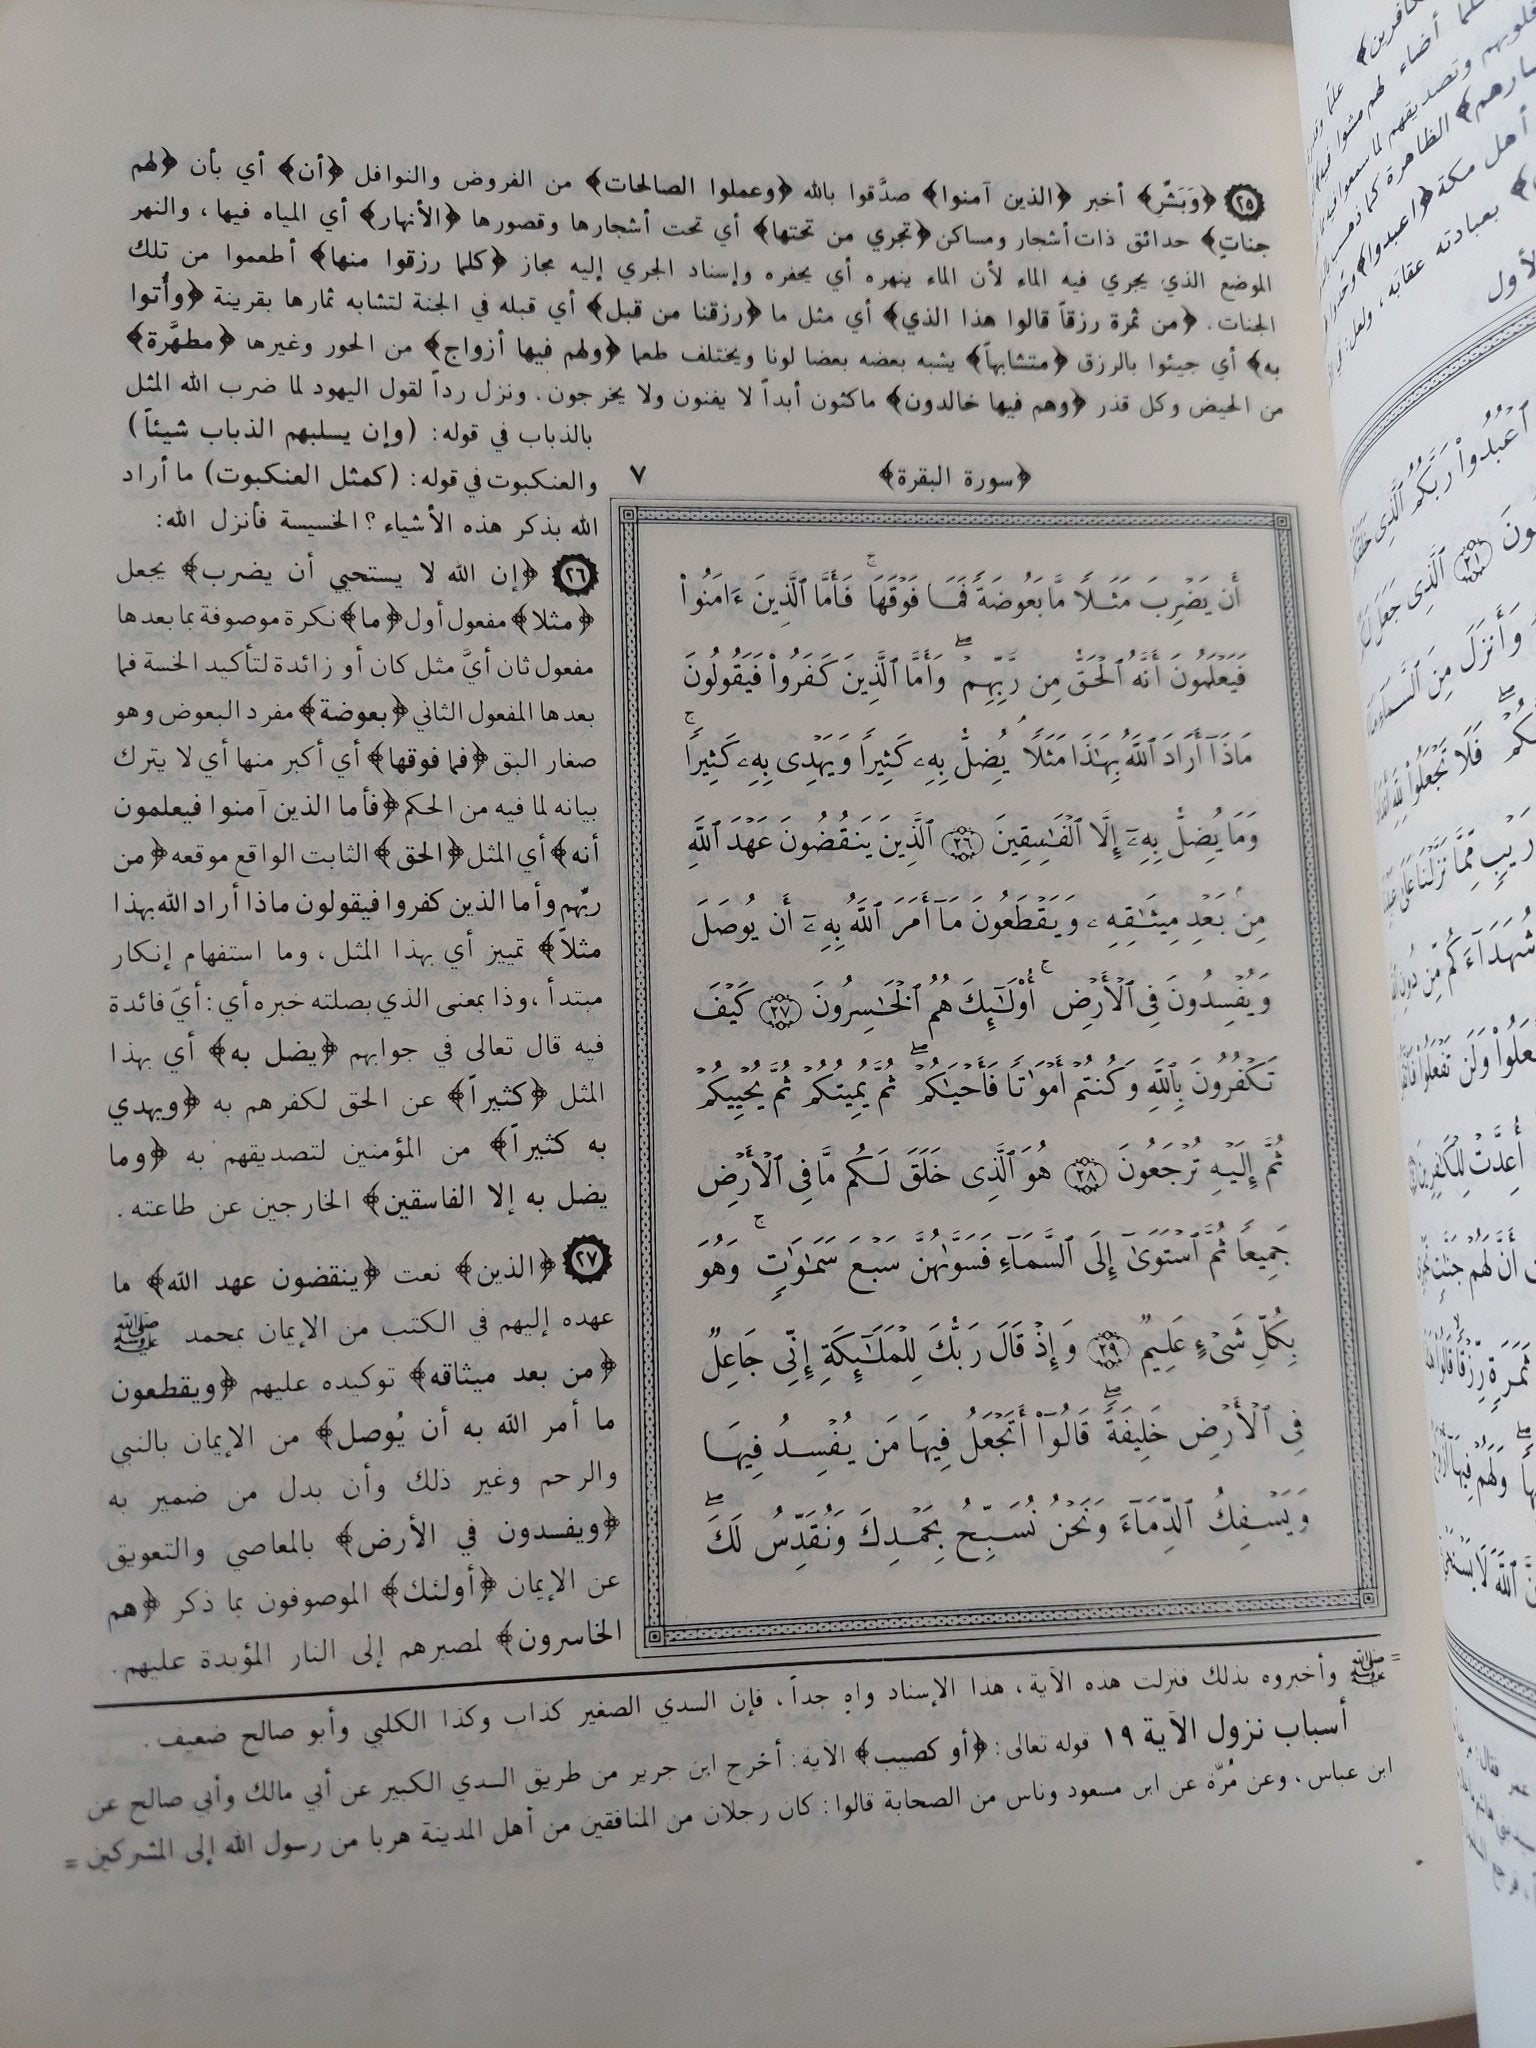 ٢٥ ﴿وَبَشِّرِ﴾ أخبر ﴿الذين آمنوا﴾ صدَّقوا بالله ﴿وعملوا الصالحات﴾ من الفروض والنوافل ﴿أن﴾ أي بأن ﴿لهم
جناتٍ﴾ حدائق ذات أشجار ومساكن ﴿تجري من تحتها﴾ أي تحت أشجارها وقصورها ﴿الأنهار﴾ أي المياه فيها، والنهر
الموضع الذي يجري فيه الماء لأن الماء ينهره أي يحفره وإسناد الجري إليه مجاز ﴿كلما رزقوا منها﴾ أطعموا من تلك
الجنات. ﴿من ثمرة رزقاً قالوا هذا الذي﴾ أي مثل ما ﴿رزقنا من قبل﴾ أي قبله في الجنة لتشابه ثمارها بقرينة ﴿وأُتوا
به﴾ أي جيئوا بالرزق ﴿متشابهاً﴾ يشبه بعضه بعضا لونا ويختلف طعما ﴿ولهم فيها أزواج﴾ من الحور وغيرها ﴿مطهَّرة﴾
من الحيض وكل قذر ﴿وهم فيها خالدون﴾ ماكثون أبداً لا يفنون ولا يخرجون. ونزل رداً لقول اليهود لما ضرب الله المثل
بالذباب في قوله: (وإن يسلبهم الذباب شيئاً)
والعنكبوت في قوله: (كمثل العنكبوت) ما أراد
الله بذكر هذه الأشياء؟ الخسيسة فأنزل الله:
٢٦ ﴿إن الله لا يستحيي أن يضرب﴾ يجعل
﴿مثلا﴾ مفعول أول ﴿ما﴾ نكرة موصوفة بما بعدها
مفعول ثان أيَّ مثل كان أو زائدة لتأكيد الخسة فما
بعدها المفعول الثاني ﴿بعوضة﴾ مفرد البعوض وهو
صغار البق ﴿فما فوقها﴾ أي أكبر منها أي لا يترك
بيانه لما فيه من الحكم ﴿فأما الذين آمنوا فيعلمون
أنه﴾ أي المثل ﴿الحق﴾ الثابت الواقع موقعه ﴿من
ربِّهم وأما الذين كفروا فيقولون ماذا أراد الله بهذا
مثلاً﴾ تمييز أي بهذا المثل، وما استفهام إنكار
مبتدأ، وذا بمعنى الذي بصلته خبره أي: أيّ فائدة
فيه قال تعالى في جوابهم ﴿يضل به﴾ أي بهذا
المثل ﴿كثيراً﴾ عن الحق لكفرهم به ﴿ويهدي
به كثيراً﴾ من المؤمنين لتصديقهم به ﴿وما
يضل به إلا الفاسقين﴾ الخارجين عن طاعته.
٢٧ ﴿الذين﴾ نعت ﴿ينقضون عهد الله﴾ ما
عهده إليهم في الكتب من الإيمان بمحمد ﷺ
﴿من بعد ميثاقه﴾ توكيده عليهم ﴿ويقطعون
ما أمر الله به أن يُوصل﴾ من الإيمان بالنبي
والرحم وغير ذلك وأن بدل من ضمير به
﴿ويفسدون في الأرض﴾ بالمعاصي والتعويق
عن الإيمان ﴿أولئك﴾ الموصوفون بما ذكر ﴿هم
الخاسرون﴾ لمصيرهم إلى النار المؤبدة عليهم.
﴿سورة البقرة﴾ ٧
أَن يَضْرِبَ مَثَلًا مَّا بَعُوضَةً فَمَا فَوْقَهَا ۚ فَأَمَّا ٱلَّذِينَ ءَامَنُوا۟
فَيَعْلَمُونَ أَنَّهُ ٱلْحَقُّ مِن رَّبِّهِمْ ۖ وَأَمَّا ٱلَّذِينَ كَفَرُوا۟ فَيَقُولُونَ
مَاذَآ أَرَادَ ٱللَّهُ بِهَٰذَا مَثَلًا ۘ يُضِلُّ بِهِۦ كَثِيرًا وَيَهْدِى بِهِۦ كَثِيرًا ۚ
وَمَا يُضِلُّ بِهِۦٓ إِلَّا ٱلْفَٰسِقِينَ ٢٦ ٱلَّذِينَ يَنقُضُونَ عَهْدَ ٱللَّهِ
مِنۢ بَعْدِ مِيثَٰقِهِۦ وَيَقْطَعُونَ مَآ أَمَرَ ٱللَّهُ بِهِۦٓ أَن يُوصَلَ
وَيُفْسِدُونَ فِى ٱلْأَرْضِ ۚ أُو۟لَٰٓئِكَ هُمُ ٱلْخَٰسِرُونَ ٢٧ كَيْفَ
تَكْفُرُونَ بِٱللَّهِ وَكُنتُمْ أَمْوَٰتًا فَأَحْيَٰكُمْ ۖ ثُمَّ يُمِيتُكُمْ ثُمَّ يُحْيِيكُمْ
ثُمَّ إِلَيْهِ تُرْجَعُونَ ٢٨ هُوَ ٱلَّذِى خَلَقَ لَكُم مَّا فِى ٱلْأَرْضِ
جَمِيعًا ثُمَّ ٱسْتَوَىٰٓ إِلَى ٱلسَّمَآءِ فَسَوَّىٰهُنَّ سَبْعَ سَمَٰوَٰتٍ ۚ وَهُوَ
بِكُلِّ شَىْءٍ عَلِيمٌ ٢٩ وَإِذْ قَالَ رَبُّكَ لِلْمَلَٰٓئِكَةِ إِنِّى جَاعِلٌ
فِى ٱلْأَرْضِ خَلِيفَةً ۖ قَالُوٓا۟ أَتَجْعَلُ فِيهَا مَن يُفْسِدُ فِيهَا
وَيَسْفِكُ ٱلدِّمَآءَ وَنَحْنُ نُسَبِّحُ بِحَمْدِكَ وَنُقَدِّسُ لَكَ ۖ
= ﷺ وأخبروه بذلك فنزلت هذه الآية، هذا الإسناد واهٍ جداً، فإن السدي الصغير كذاب وكذا الكلبي وأبو صالح ضعيف.
أسباب نزول الآية ١٩ قوله تعالى: ﴿أو كصيب﴾ الآية: أخرج ابن جرير من طريق السدي الكبير عن أبي مالك وأبي صالح عن
ابن عباس، وعن مُرّة عن ابن مسعود وناس من الصحابة قالوا: كان رجلان من المنافقين من أهل المدينة هربا من رسول الله إلى المشركين =